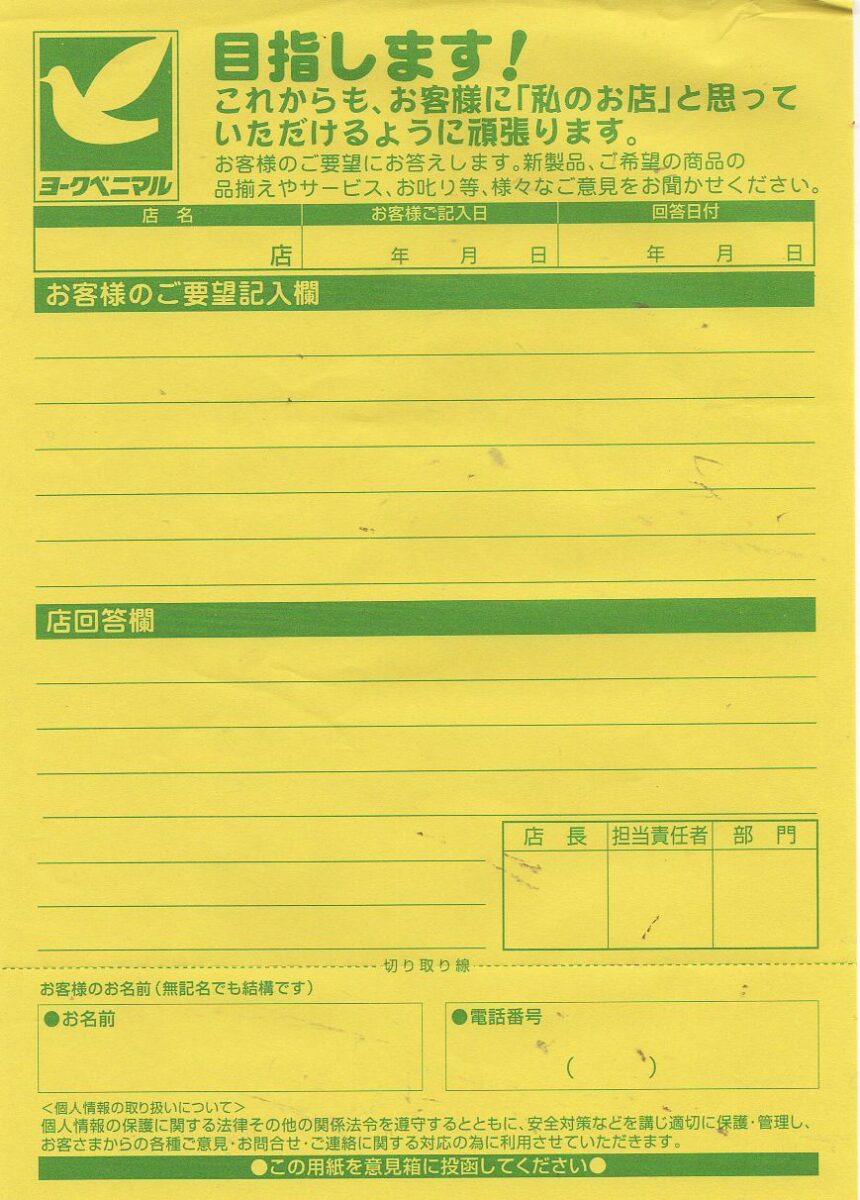 目指します!
これからも、お客様に「私のお店」と思って
いただけるように頑張ります。
お客様のご要望にお答えします。新製品、ご希望の商品の
品揃えやサービス、お叱り等、様々なご意見をお聞かせください。
ヨークベニマル
店 名 お客様ご記入日 回答日付
店 年 月 日 年 月 日
お客様のご要望記入欄
店回答欄
店 長 担当責任者 部 門
切り取り線
お客様のお名前(無記名でも結構です)
●お名前 ●電話番号
( )
<個人情報の取り扱いについて>
個人情報の保護に関する法律その他の関係法令を遵守するとともに、安全対策などを講じ適切に保護・管理し、
お客さまからの各種ご意見・お問合せ・ご連絡に関する対応の為に利用させていただきます。
●この用紙を意見箱に投函してください●